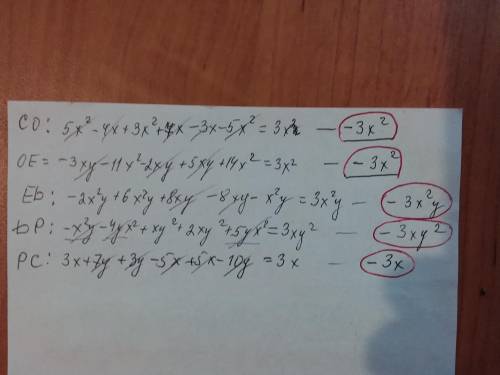 CO: 5x² - 4x + 3x² + 7x - 3x - 5x² = 3x² — -3x²
OE = -3xy - 11x² - 2xy + 5xy + 14x² = 3x² — -3x²
Eb: -2x²y + 6x²y + 8xy - 8xy - x²y = 3x²y — -3x²y
bP: -x²y - 4yx² + xy² + 2xy² + 5yx² = 3xy² — -3xy²
PC: 3x + 7y + 3y - 5x + 5x - 10y = 3x — -3x